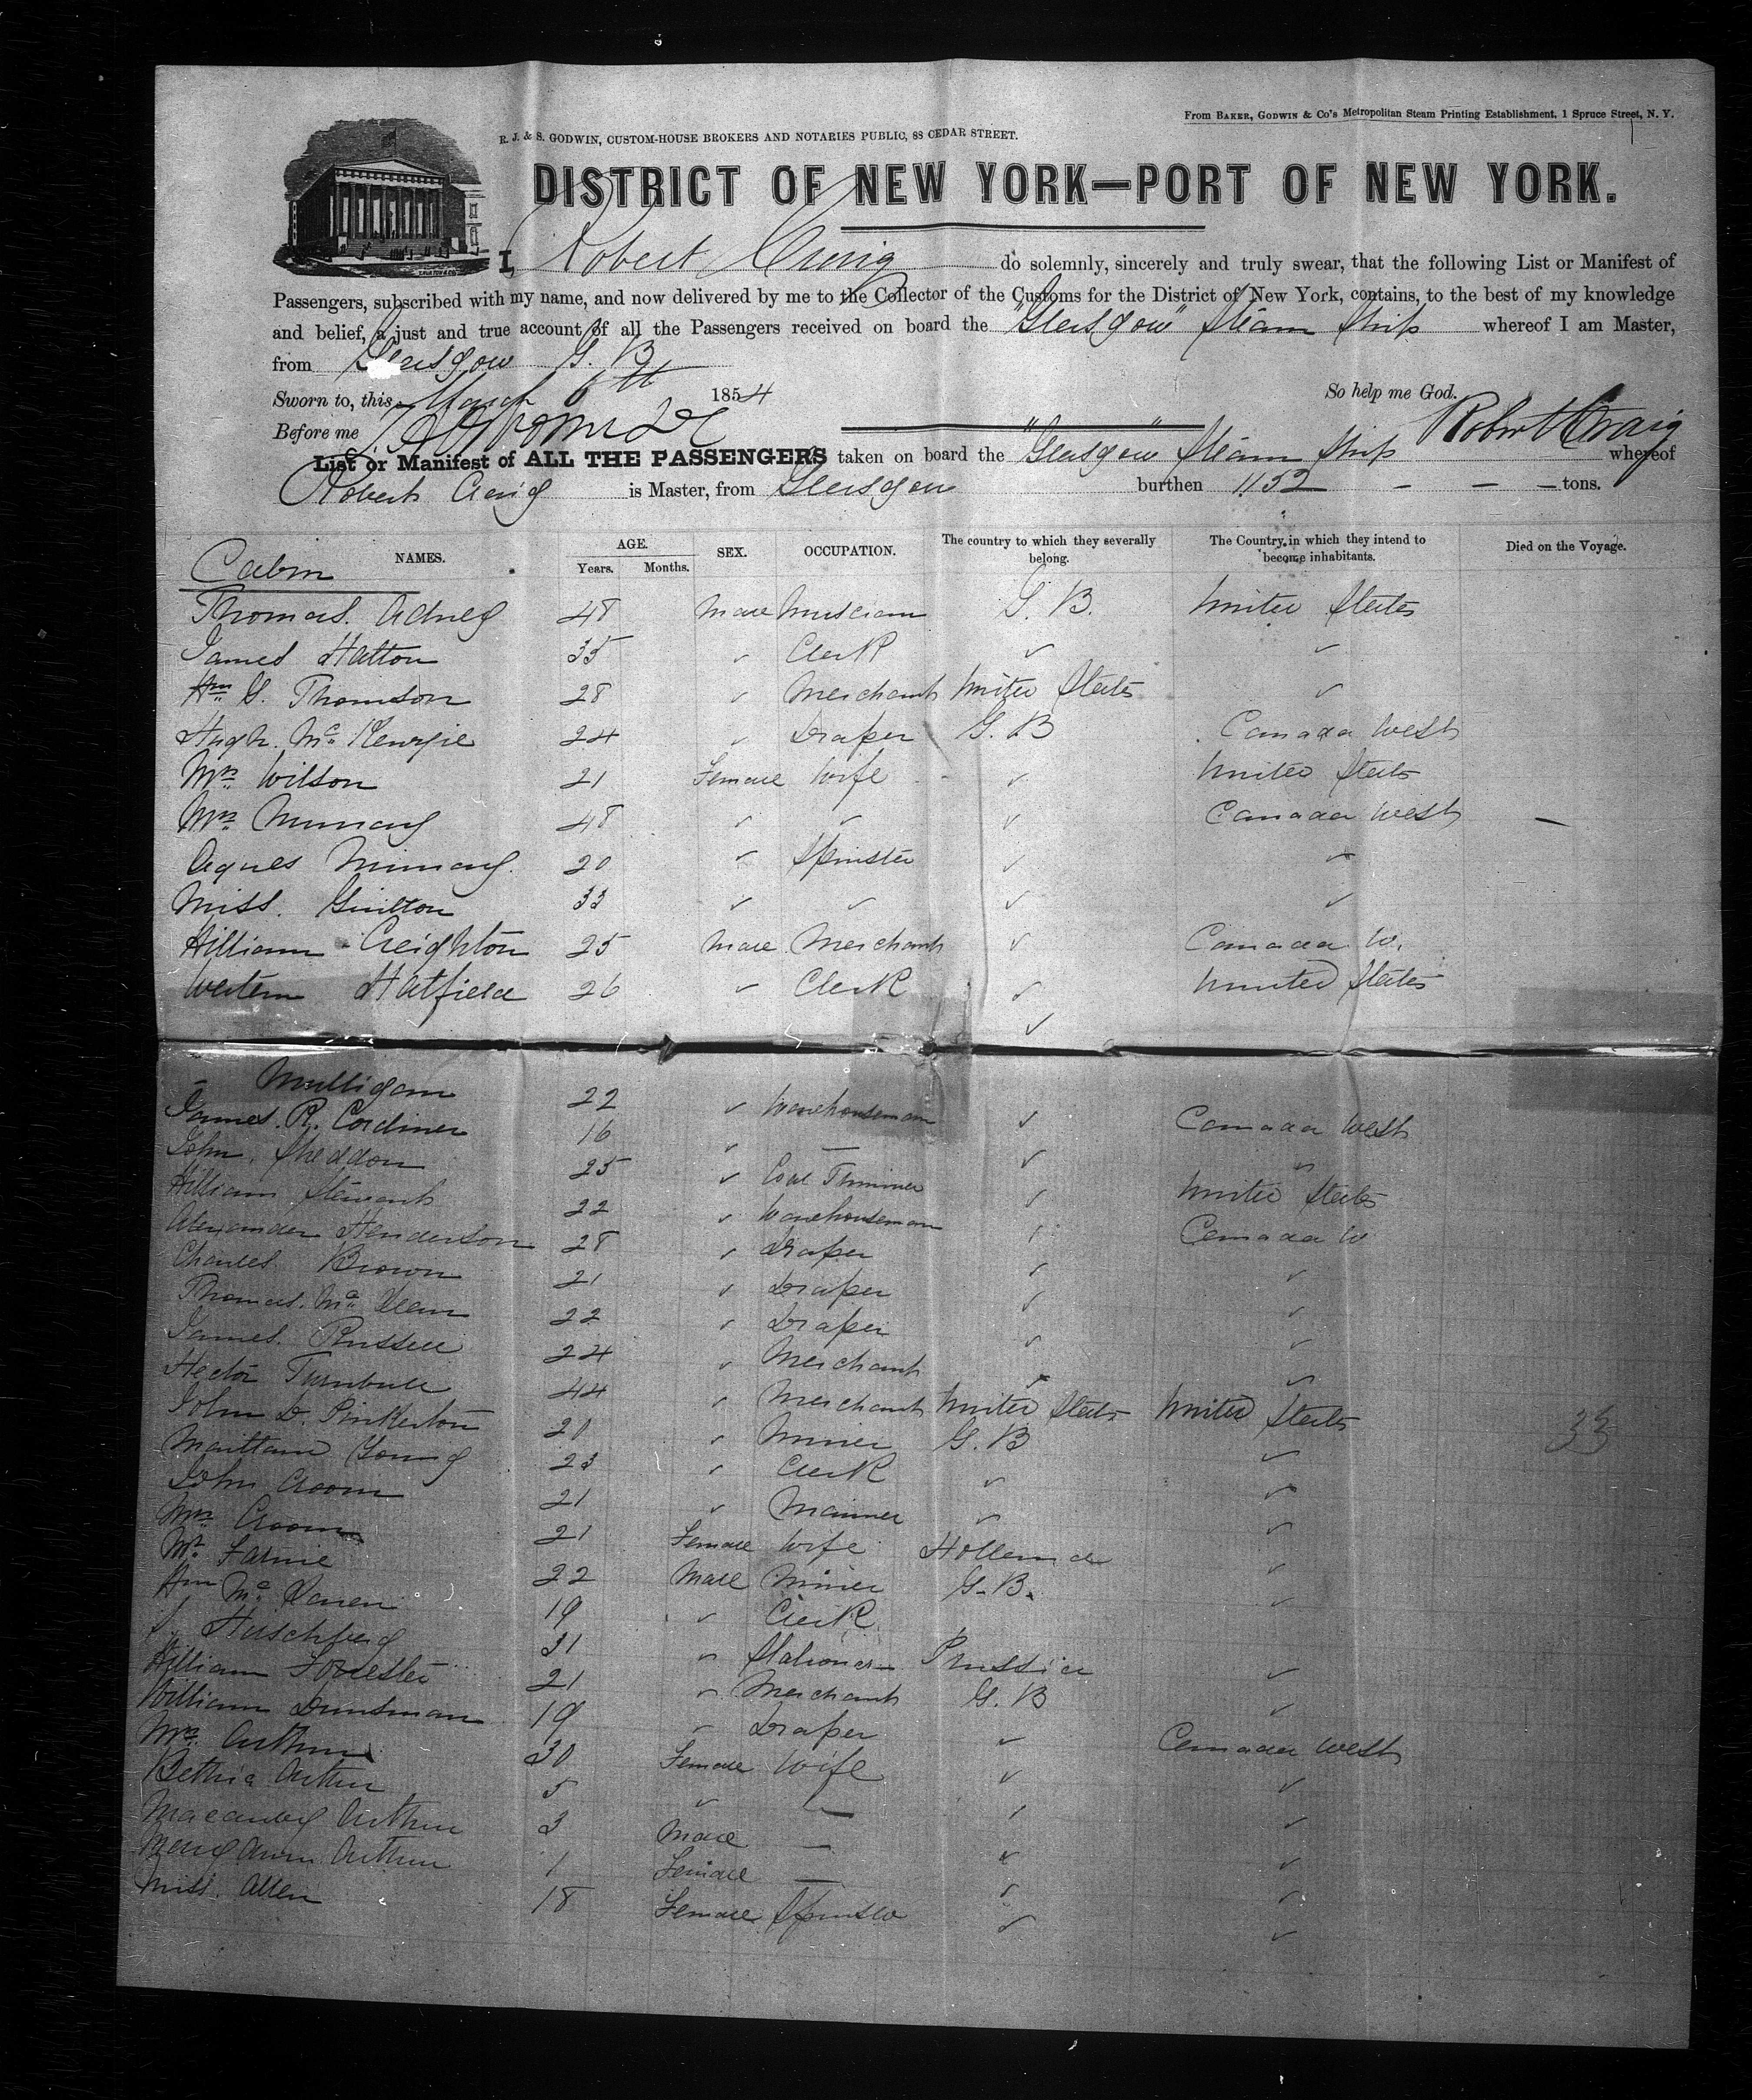 From BAKER, GODWIN & Co's Metropolitan Steam Printing Establishment, 1 Spruce Street, N. Y.
R. J. & S. GODWIN, CUSTOM-HOUSE BROKERS AND NOTARIES PUBLIC, 88 CEDAR STREET.
DISTRICT OF NEW YORK—PORT OF NEW YORK.
I, Robert Craig do solemnly, sincerely and truly swear, that the following List or Manifest of
Passengers, subscribed with my name, and now delivered by me to the Collector of the Customs for the District of New York, contains, to the best of my knowledge
and belief, a just and true account of all the Passengers received on board the "Glasgow" Steam Ship whereof I am Master,
from Glasgow G. B
Sworn to, this March 6th 1854 So help me God.
Before me Robert Craig
List or Manifest of ALL THE PASSENGERS taken on board the "Glasgow" Steam Ship whereof
Robert Craig is Master, from Glasgow burthen 1152 — — — tons.
NAMES. AGE. Years. Months. SEX. OCCUPATION. The country to which they severally belong. The Country in which they intend to become inhabitants. Died on the Voyage.
Cabin
Thomas. Adney 48 Male Musician G. B. United States
James Hatton 35 ✓ Clerk ✓ ✓
Wm G. Thomson 28 ✓ Merchant United States ✓
Hugh. Mc Kenzie 24 ✓ Draper G. B Canada West
Mrs Wilson 21 Female Wife ✓ United States
Mrs Murray 48 ✓ ✓ ✓ Canada West —
Agnes Murray. 20 ✓ Spinster ✓ ✓
Miss. 33 ✓ ✓ ✓ ✓
William Creighton 25 Male Merchant ✓ Canada W.
Hatfield 26 ✓ Clerk ✓ United States
✓
– Mulligan 22 ✓ Warehouseman ✓ Canada West
James. R. Cordiner 16 ✓ — ✓ ✓
John. Sheddon 25 ✓ Coal ✓ United States
William Stewart 22 ✓ Warehouseman ✓ Canada W
Alexander Henderson 28 ✓ Draper ✓ ✓
Charles. Brown 21 ✓ Draper ✓ ✓
Thomas. Mc 22 ✓ Draper ✓ ✓
James. Russell 24 ✓ Merchant ✓ ✓
Hector Turnbull 44 ✓ Merchant United States United States
John D. Pinkerton 20 ✓ Miner G. B ✓ 33
Maitland Young 23 ✓ Clerk ✓ ✓
John Croom 21 ✓ Mariner ✓ ✓
Mrs. Croom 21 Female Wife Holland ✓
Mr. Fairnie 22 Male Miner G. B. ✓
Wm Mc Laren 19 ✓ Clerk
Hirschberg 31 ✓ Stationer Prussia ✓
William Forrester 21 ✓ Merchant G. B ✓
William Dunsman 19 ✓ Draper ✓ Canada West
Mrs. Arthur 30 Female Wife ✓ ✓
Bethia Arthur 5 ✓ — ✓ ✓
Macauley Arthur 3 Male — ✓ ✓
Mary Ann Arthur 1 Female — ✓ ✓
Miss. Allen 18 Female Spinster ✓ ✓